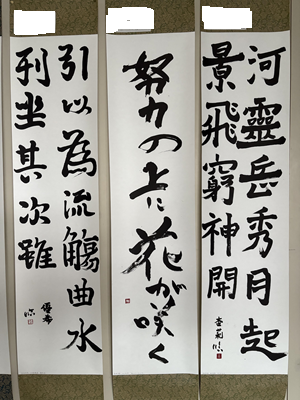 河靈岳秀月起
景飛窮神開
努力の上に花が咲く
引以為流觴曲水
列坐其次雖
優希
臨